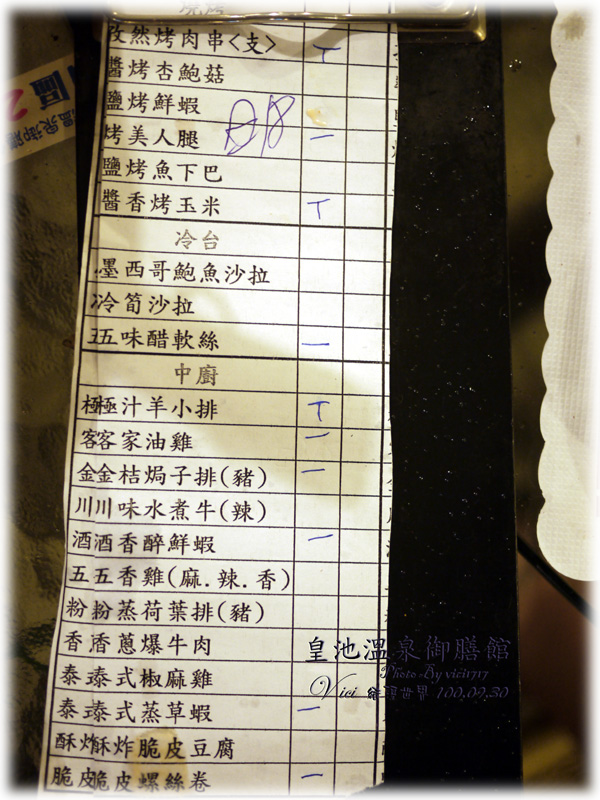 孜然烤肉串<支> T
醬烤杏鮑菇
鹽烤鮮蝦
烤美人腿 一
鹽烤魚下巴
醬香烤玉米 T
冷台
墨西哥鮑魚沙拉
冷筍沙拉
五味醋軟絲 一
中廚
極汁羊小排 T
客家油雞 一
金桔焗子排(豬) 一
川味水煮牛(辣)
酒香醉鮮蝦 一
五香雞(麻.辣.香)
粉蒸荷葉排(豬)
香蔥爆牛肉
泰式椒麻雞
泰式蒸草蝦 一
酥炸脆皮豆腐
脆皮螺絲卷 一
皇池溫泉御膳館
Photo By vici1717
Vici 食樂世界 100.09.30